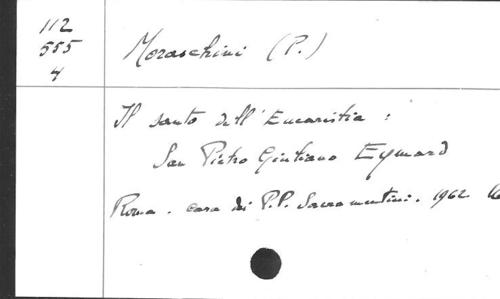 112
555
4
Moraschini (P.)
Il santo dell'Eucaristia :
San Pietro Giuliano Eymard
Roma. casa dei P.P. Sacramentini. 1962